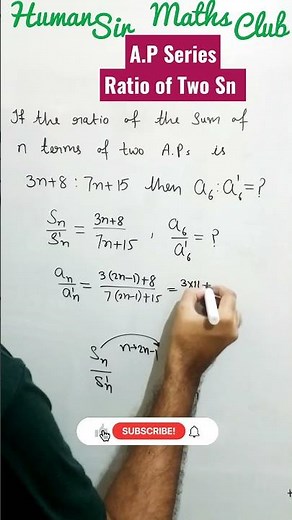 Human Sir Maths Club
A.P Series
Ratio of Two Sn
If the ratio of the sum of
n terms of two A.Ps is
3n+8 : 7n+15 then a₆ : a'₆ = ?
Sₙ/S'ₙ = 3n+8/7n+15 , a₆/a'₆ = ?
aₙ/a'ₙ = 3(2n-1)+8/7(2n-1)+15 = 3×11+
Sₙ/S'ₙ n→2n-1
SUBSCRIBE!